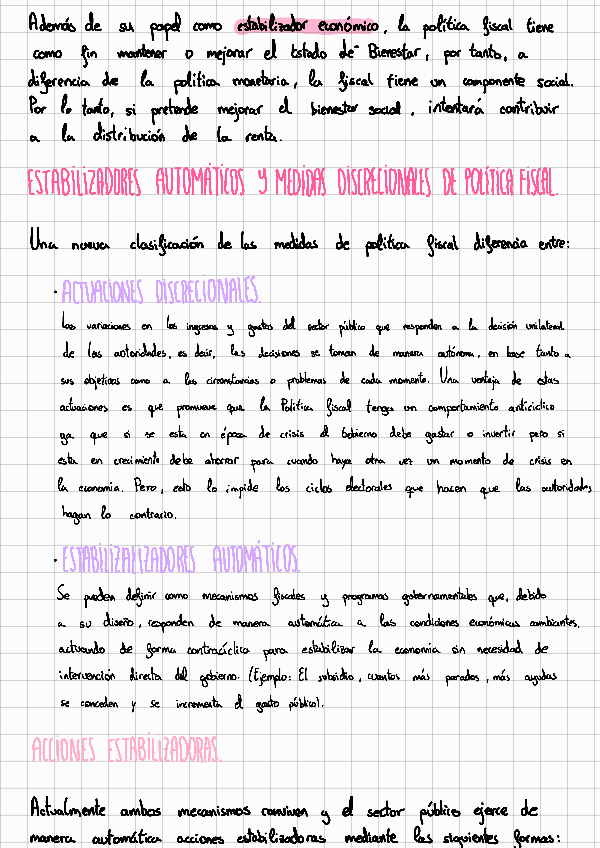 Además de su papel como estabilizador económico, la política fiscal tiene
como fin mantener o mejorar el Estado de Bienestar, por tanto, a
diferencia de la política monetaria, la fiscal tiene un componente social.
Por lo tanto, si pretende mejorar el bienestar social, intentará contribuir
a la distribución de la renta.
ESTABILIZADORES AUTOMÁTICOS Y MEDIDAS DISCRECIONALES DE POLÍTICA FISCAL.
Una nueva clasificación de las medidas de política fiscal diferencia entre:
· ACTUACIONES DISCRECIONALES.
Las variaciones en los ingresos y gastos del sector público que responden a la decisión unilateral
de las autoridades, es decir, las decisiones se toman de manera autónoma, en base tanto a
sus objetivos como a las circunstancias o problemas de cada momento. Una ventaja de estas
actuaciones es que promueve que la Política fiscal tenga un comportamiento anticíclico
ya que si se esta en época de crisis el Gobierno debe gastar o invertir pero si
esta en crecimiento debe ahorrar para cuando haya otra vez un momento de crisis en
la economía. Pero, esto lo impide los ciclos electorales que hacen que las autoridades
hagan lo contrario.
· ESTABILIZALIZADORES AUTOMÁTICOS.
Se pueden definir como mecanismos fiscales y programas gubernamentales que, debido
a su diseño, responden de manera automática a las condiciones económicas cambiantes,
actuando de forma contracíclica para estabilizar la economía sin necesidad de
intervención directa del gobierno. (Ejemplo: El subsidio, cuantos más parados, más ayudas
se conceden y se incrementa el gasto público).
ACCIONES ESTABILIZADORAS.
Actualmente ambos mecanismos conviven y el sector público ejerce de
manera automática acciones estabilizadoras mediante las siguientes formas: